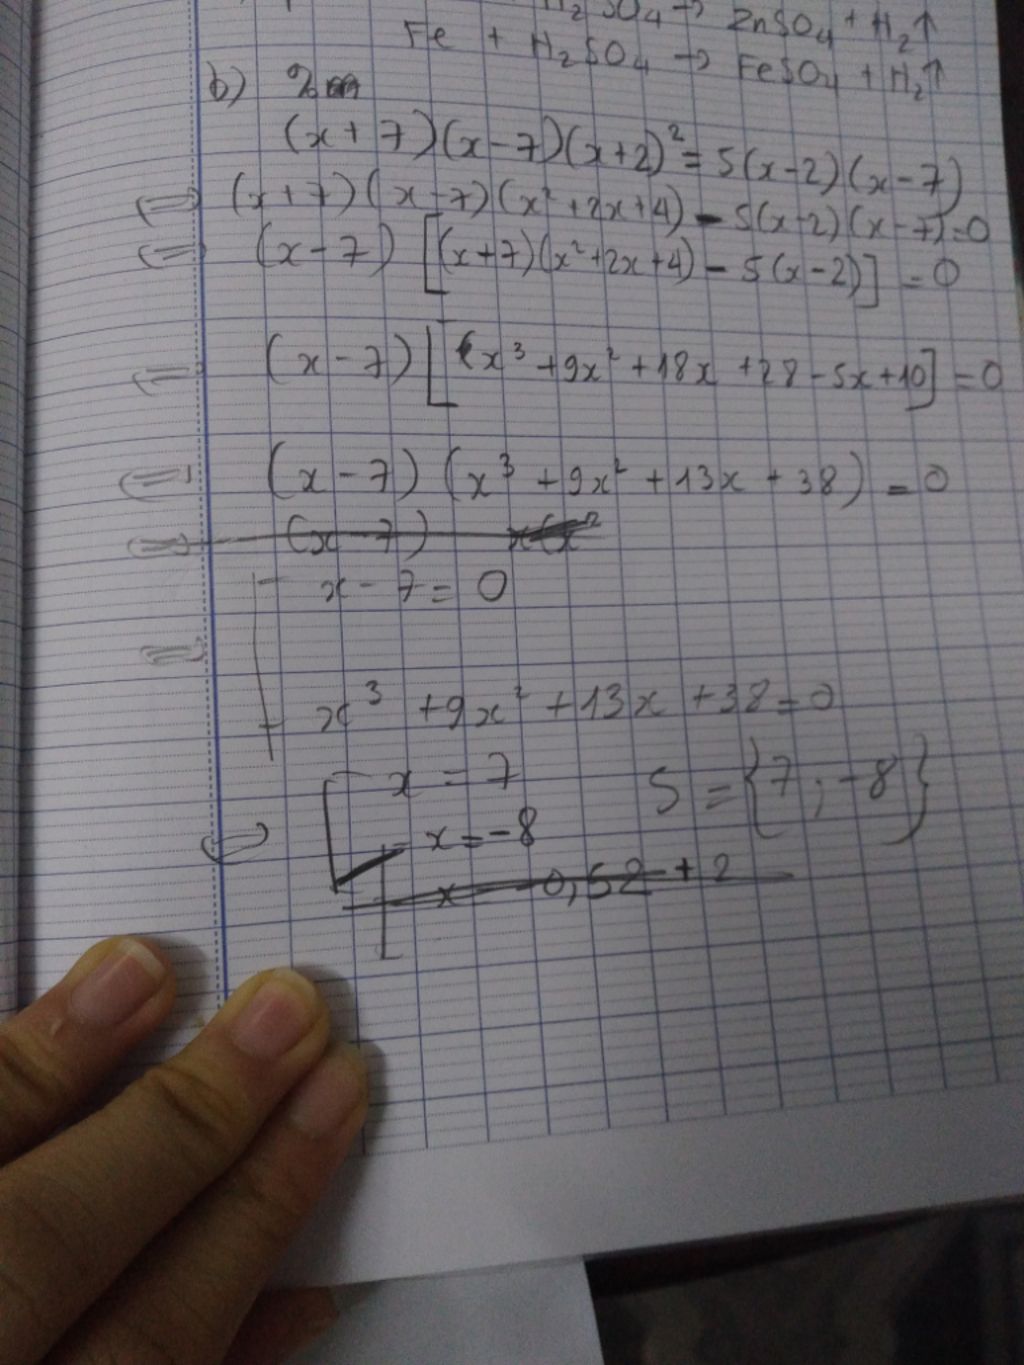 H₂SO₄ → ZnSO₄ + H₂↑
Fe + H₂SO₄ → FeSO₄ + H₂↑
b)
(x+7)(x-7)(x+2)² = 5(x-2)(x-7)
⇔ (x+7)(x-7)(x²+2x+4) - 5(x-2)(x-7)=0
⇔ (x-7) [(x+7)(x²+2x+4) - 5(x-2)] = 0
⇔ (x-7) [(x³ +9x² +18x +28 - 5x+10] = 0
⇔ (x-7) (x³ +9x² +13x +38) = 0
⇔ (x-7) x(x²
x-7= 0
⇔
x³ +9x² +13x +38=0
x = 7 S = {7 ; -8}
⇔ x = -8
x = -0,52 + 2